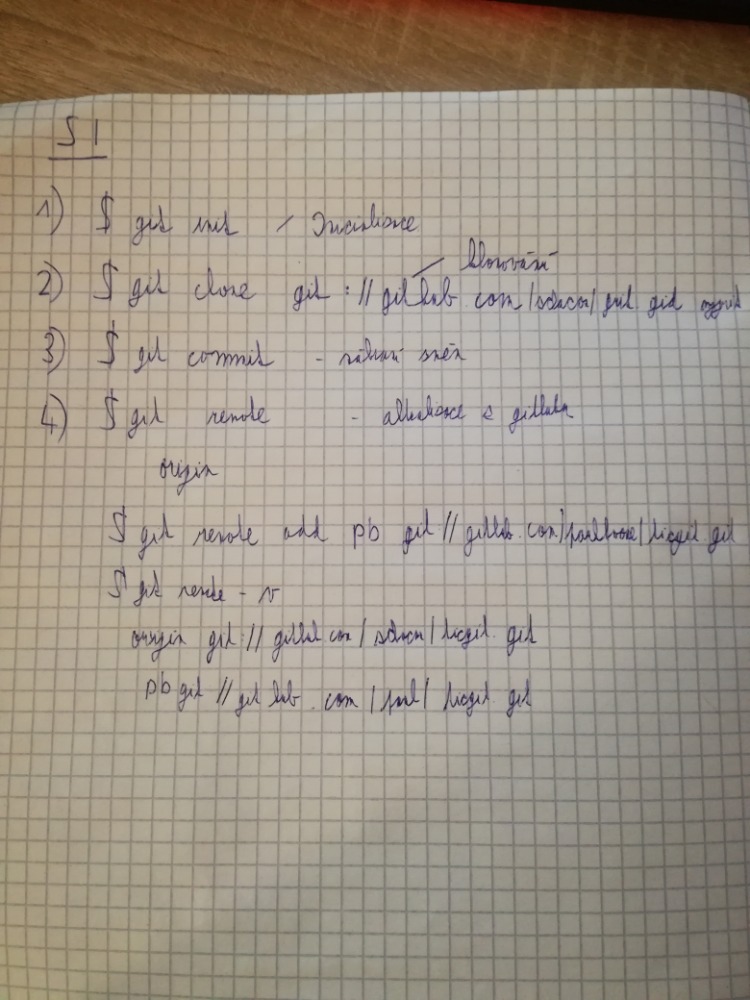 S 1
1) $ git init / Inicializace
klonování
2) $ git clone git://github.com/schacon/
3) $ git commit -
4) $ git remote -
origin
$ git remote add pb git//github.com/paulboone/ticgit.git
$ git remote -v
origin git://github.com/schacon/ticgit.git
pb git//github.com/paul/ticgit.git